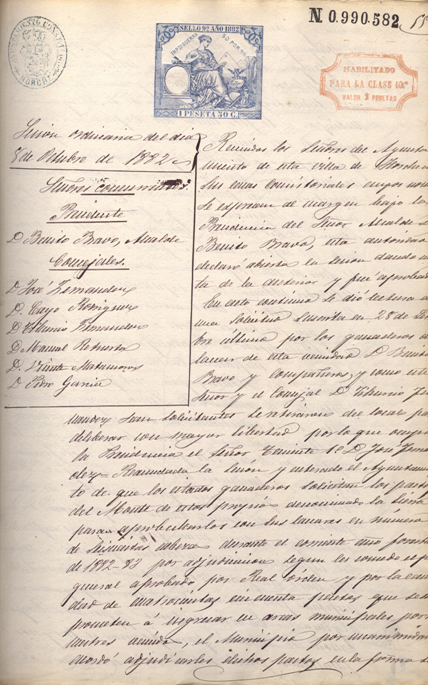 N. 0.990.582
SELLO 9º AÑO 1882
1 PESETA 50 C.
HABILITADO
PARA LA CLASE 10ª
VALOR 2 PESETAS
Sesion ordinaria del dia
8 de Octubre de 1882
Señores concurrentes
Presidente
D. Benito Bravo, Alcalde
Concejales.
D. José Fernandez
D. Cayo Rodriguez
D. Tiburcio Fernandez
D. Manuel
D.
D. Pedro Garcia
Reunidos los Señores del Ayunta
miento de esta villa de
Salas Consistoriales cuyos nom
se espresan al margen bajo la
Presidencia del Señor Alcalde D.
Benito Bravo, esta autoridad
declaró abierta la sesion dando lectu
ra de la anterior y fué aprobada
En este se dió lectura a
una solicitud suscrita en 28 de
ultimo por los ganaderos de
lanar de esta vecindad D. Benito
Bravo y compañeros, y como este
Señor y el Concejal D. Tiburcio Fer
nandez sean solicitantes se retiraron del local para
deliberar con mayor libertad por lo que ocupó
la Presidencia el Señor Teniente 1º D. José Fernan
dez. Reanudada la sesion y enterado el Ayuntamien
to de que los citados ganaderos solicitan los pastos
del Monte de estos propios denominado la
para aprobecharlos con sus lanares en número
de cabezas durante el corriente año forestal
de 1882-83 por adjudicacion segun los
general aprobado por Real orden y por la canti
dad de cuatrocientas cincuenta pesetas que se
prometen á ingresar en arcas municipales por
, el Municipio por unanimidad
acordó adjudicarles dichos pastos en la forma